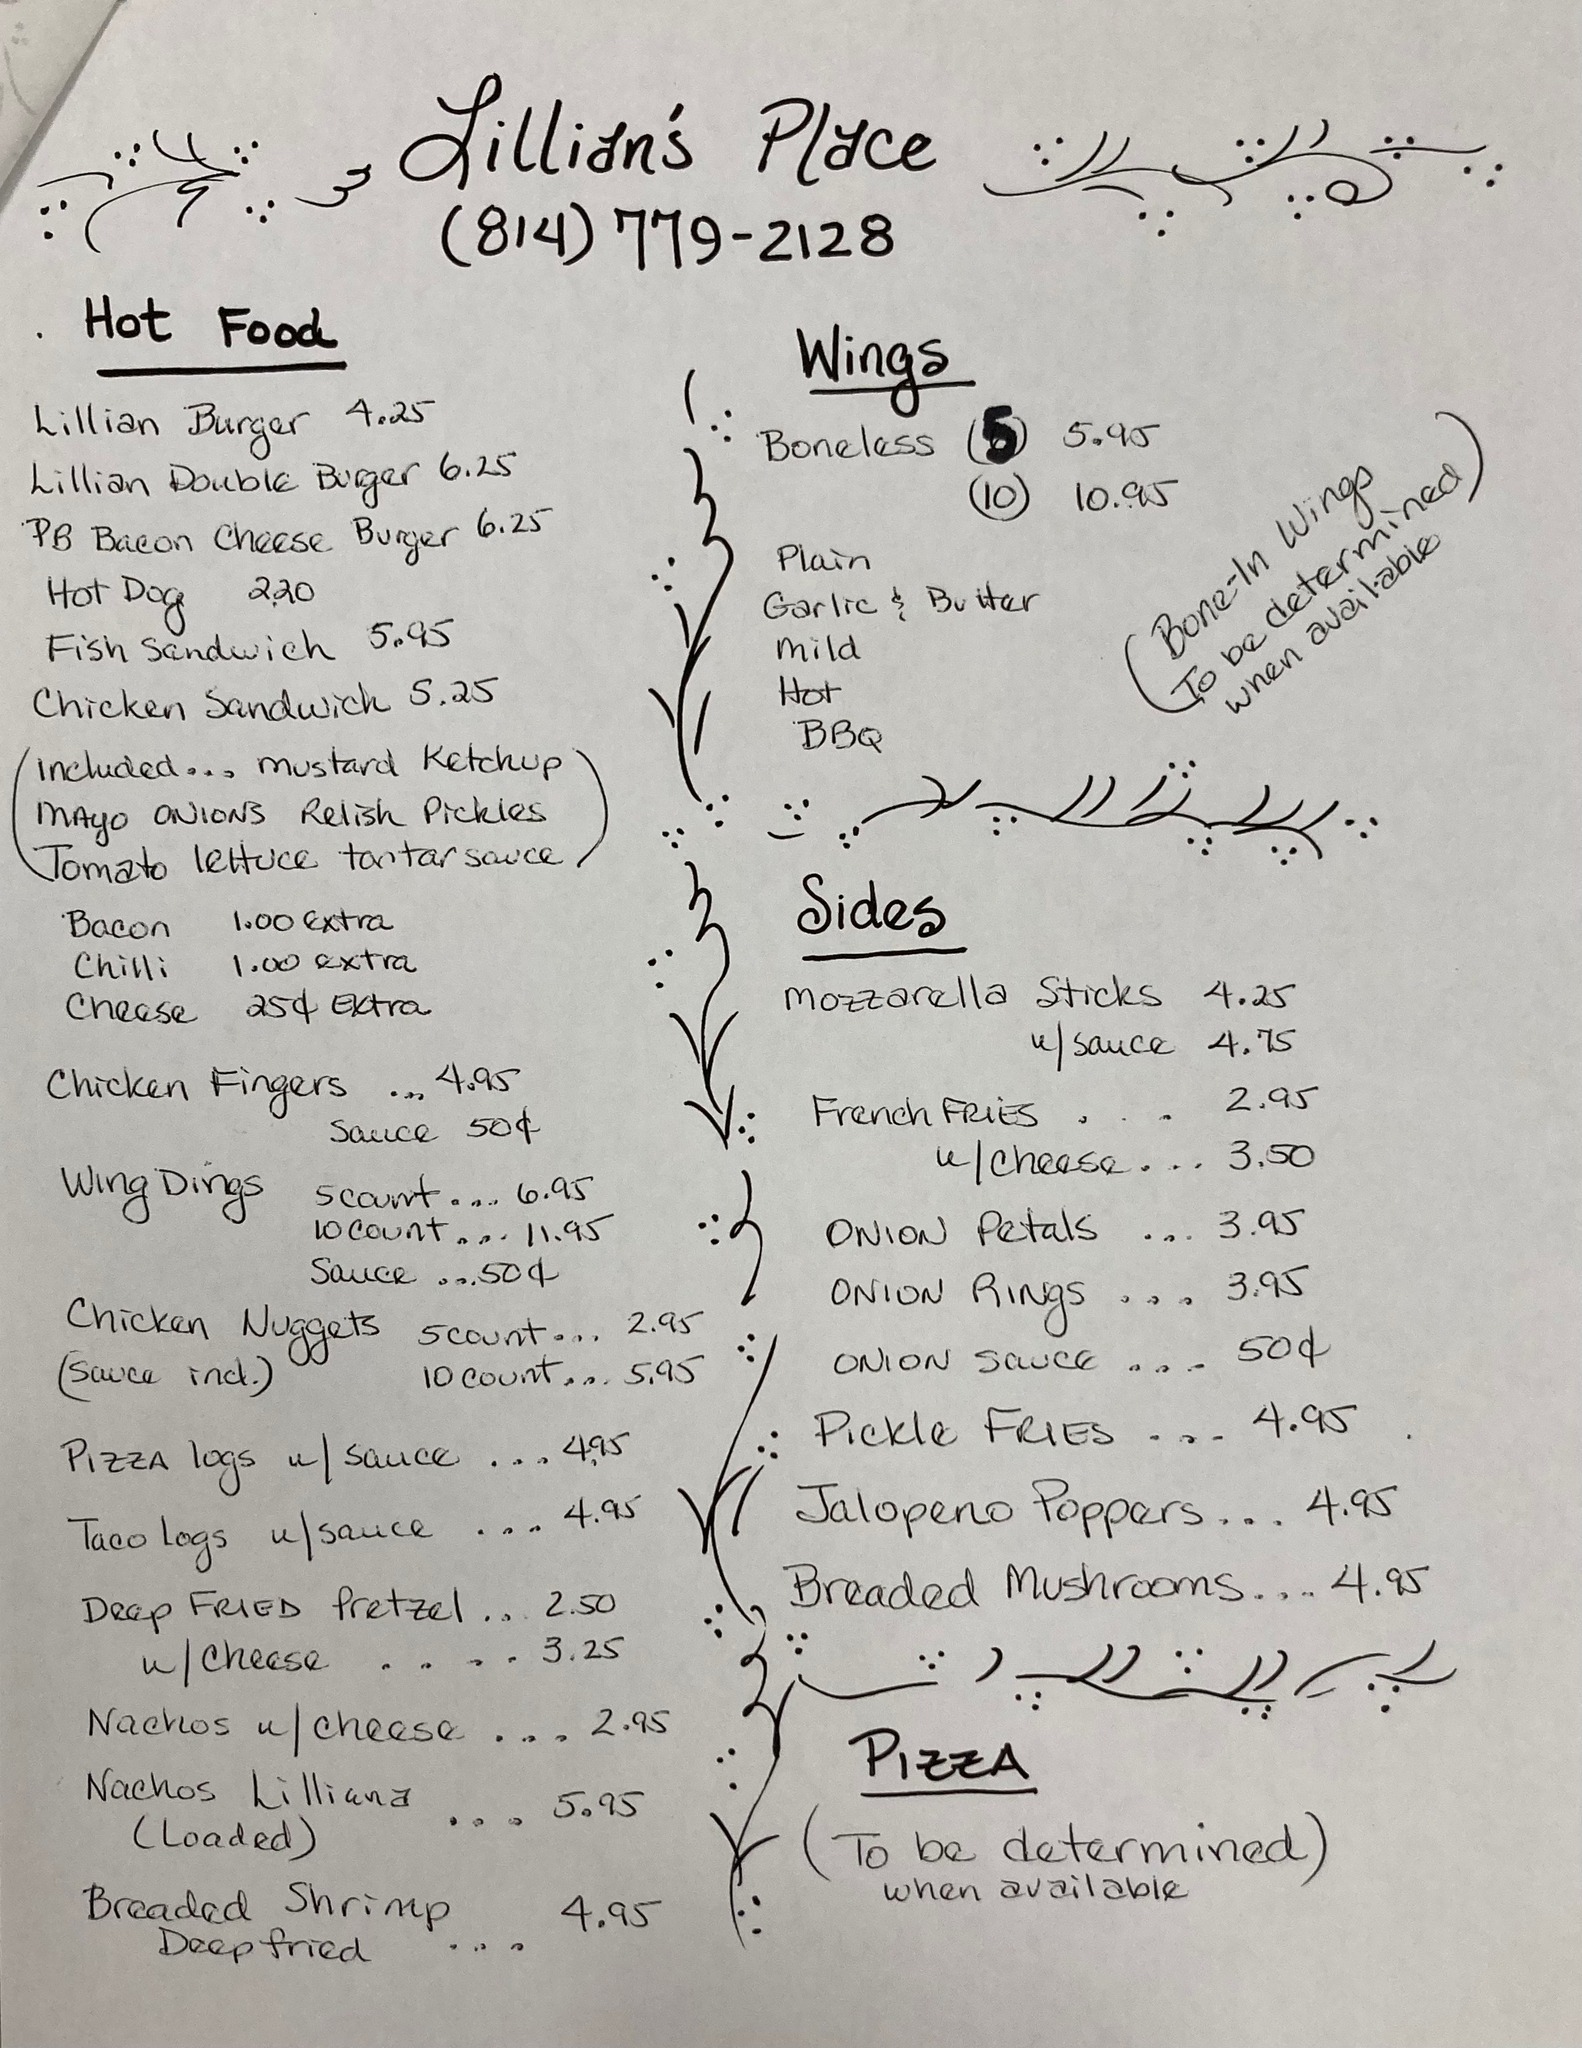 Lillian's Place
(814) 779-2128
Hot Food
Lillian Burger 4.25
Lillian Double Burger 6.25
PB Bacon Cheese Burger 6.25
Hot Dog 2.20
Fish Sandwich 5.95
Chicken Sandwich 5.25
(Included... Mustard Ketchup
Mayo ONIONS Relish Pickles
Tomato lettuce tartar sauce)
Bacon 1.00 extra
Chilli 1.00 extra
Cheese 25¢ Extra
Chicken Fingers ... 4.95
Sauce 50¢
Wing Dings 5 count .... 6.95
10 count .... 11.95
Sauce ... 50¢
Chicken Nuggets 5 count ... 2.95
(Sauce incl.) 10 count ... 5.95
PIZZA logs w/ sauce .... 4.95
Taco Logs w/sauce .... 4.95
Deep FRIED Pretzel ... 2.50
w/ Cheese ..... 3.25
Nachos w/ cheese .... 2.95
Nachos Lilliana .... 5.95
(Loaded)
Breaded Shrimp 4.95
Deep fried ...
Wings
Boneless (5) 5.95
(10) 10.95
Plain
Garlic & Butter
Mild
Hot
BBQ
(Bone-In Wings
To be determined)
when available
Sides
Mozzarella Sticks 4.25
w/sauce 4.75
French FRIES ... 2.95
w/cheese .... 3.50
ONION Petals ... 3.95
ONION RINGS .... 3.95
ONION sauce .... 50¢
Pickle FRIES .... 4.95
Jalopeno Poppers ... 4.95
Breaded Mushrooms .... 4.95
PIZZA
(To be determined)
when available